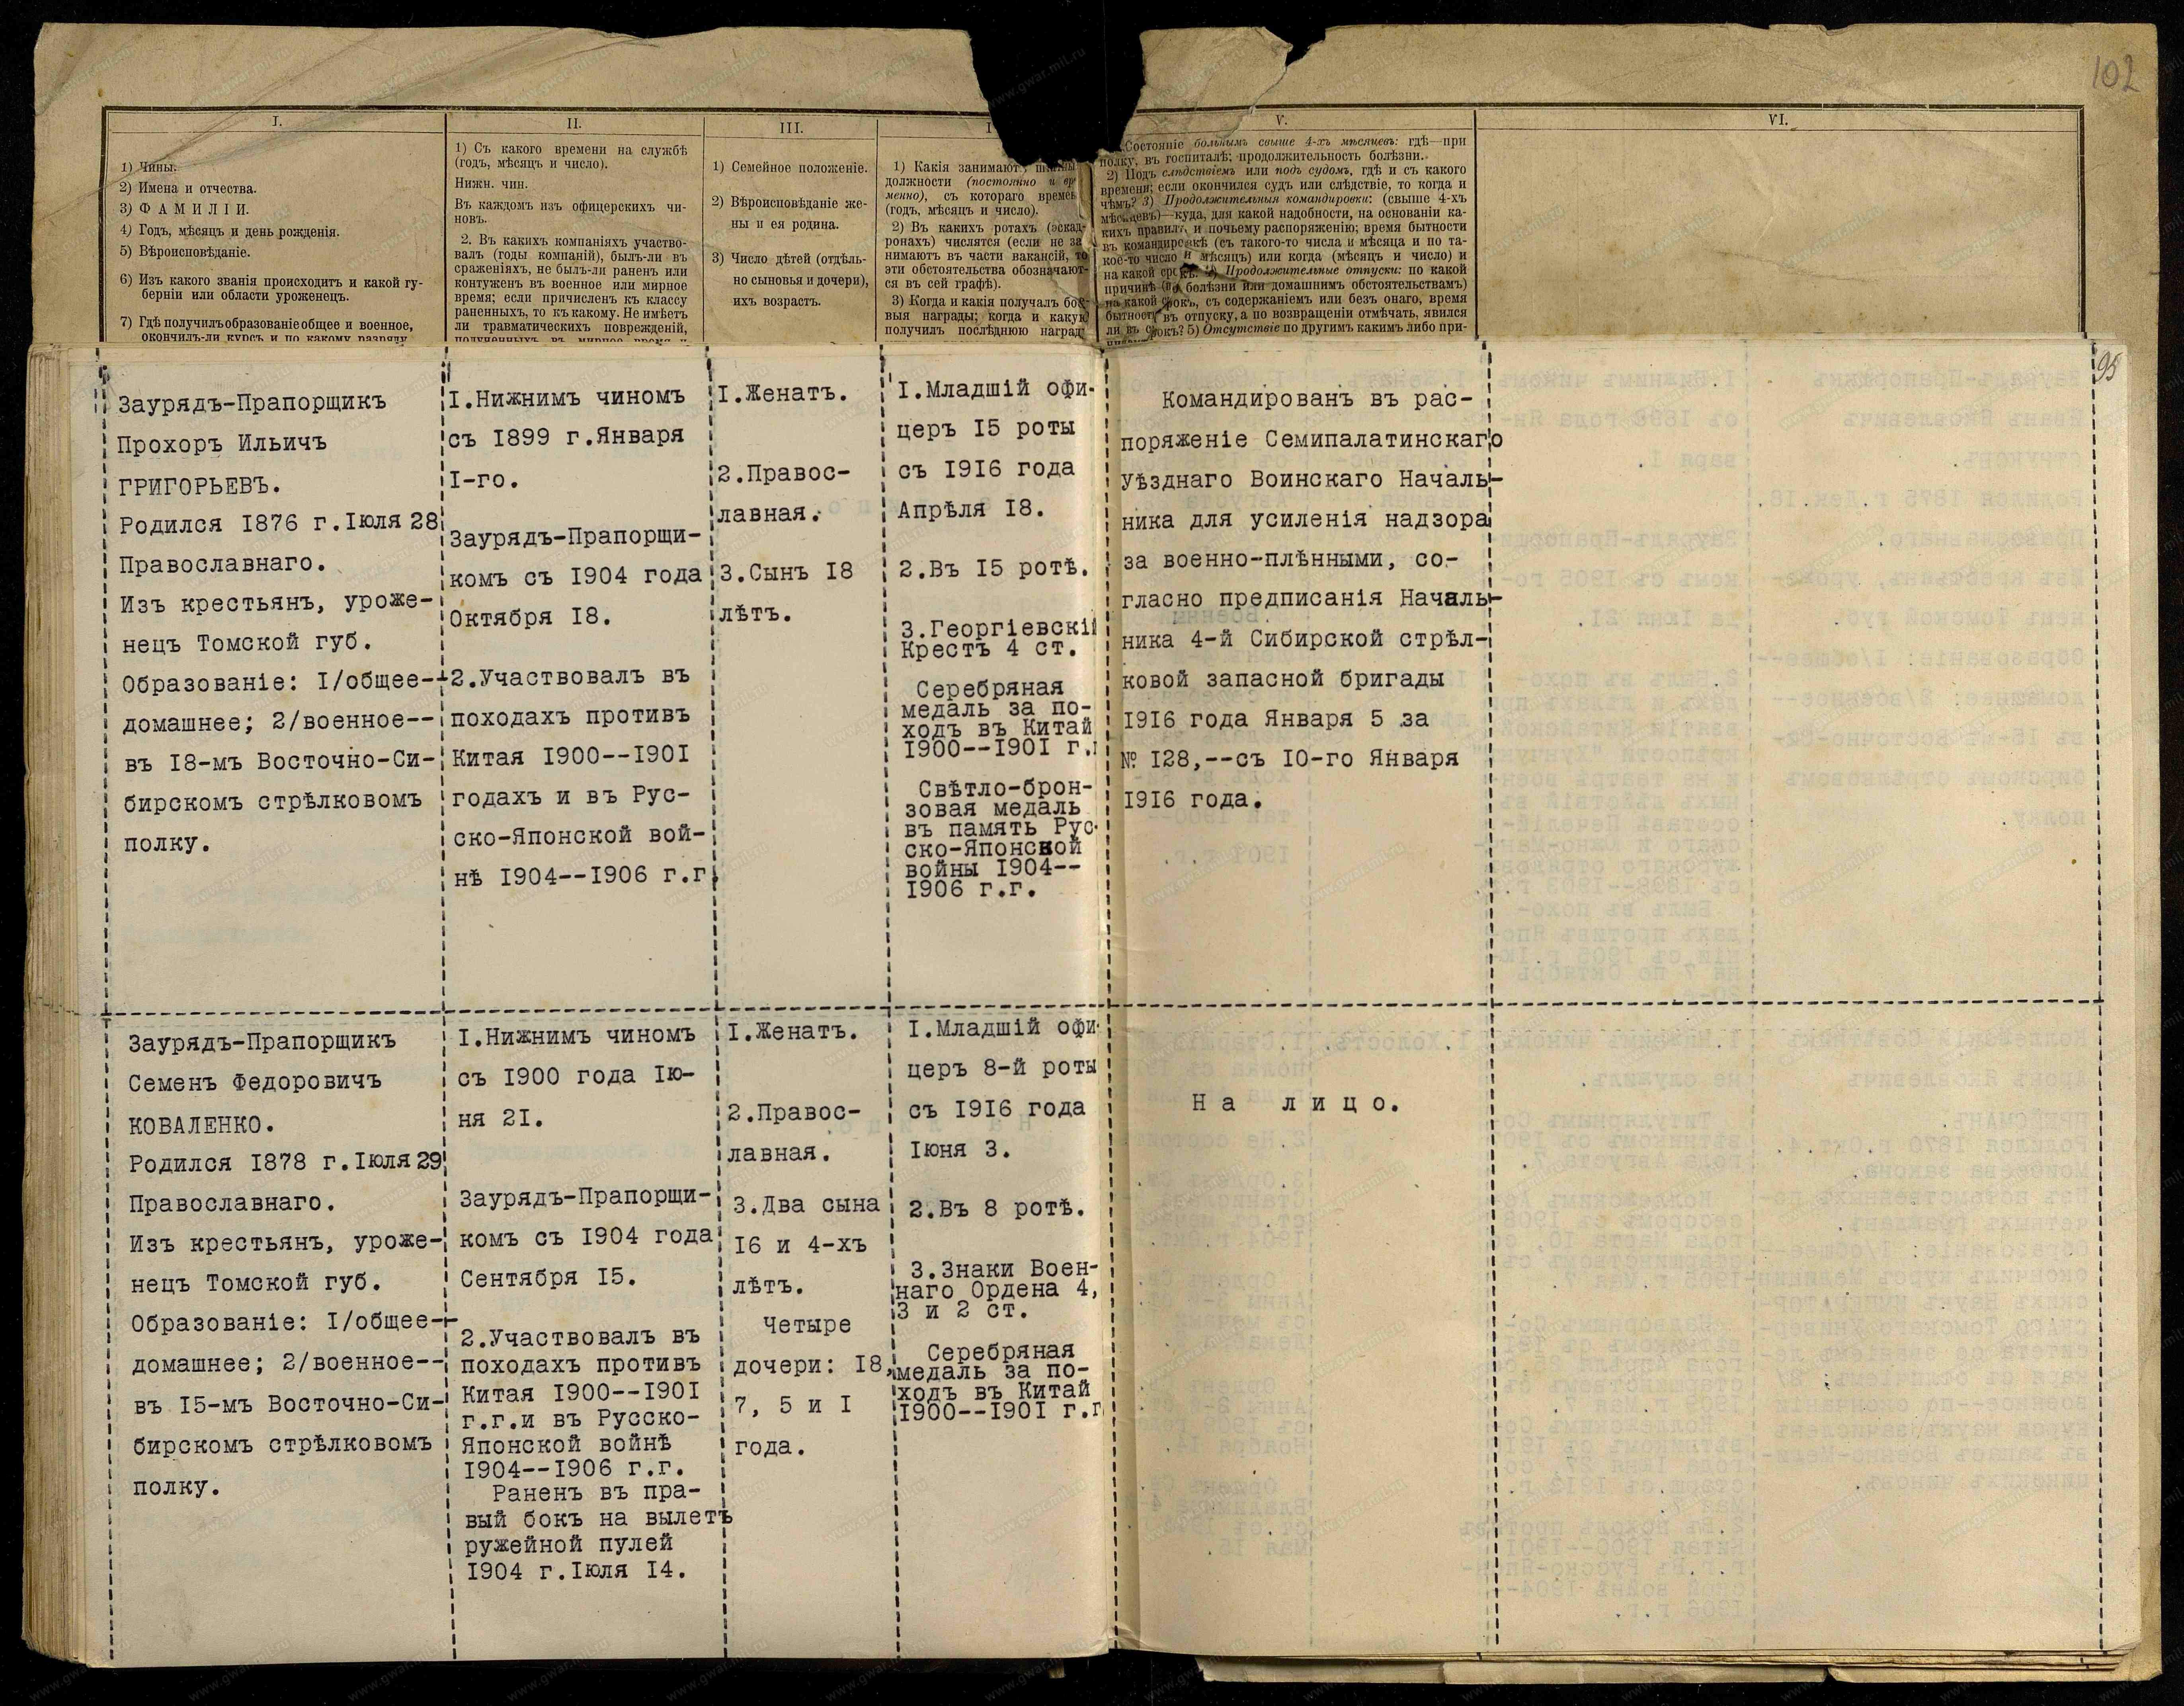 102
I.
1) Чины.
2) Имена и отчества.
3) ФАМИЛІИ.
4) Годъ, мѣсяцъ и день рожденія.
5) Вѣроисповѣданіе.
6) Изъ какого званія происходитъ и какой гу-
берніи или области уроженецъ.
7) Гдѣ получилъ образованіе общее и военное,
окончилъ-ли курсъ и по какому разряду
II.
1) Съ какого времени на службѣ
(годъ, мѣсяцъ и число).
Нижн. чин.
Въ каждомъ изъ офицерскихъ чи-
новъ.
2. Въ какихъ компаніяхъ участво-
валъ (годы компаній), былъ-ли въ
сраженіяхъ, не былъ-ли раненъ или
контуженъ въ военное или мирное
время; если причисленъ къ классу
раненныхъ, то къ какому. Не имѣетъ
ли травматическихъ поврежденій,
полученныхъ въ мирное время и
III.
1) Семейное положеніе.
2) Вѣроисповѣданіе же-
ны и ея родина.
3) Число дѣтей (отдѣль-
но сыновья и дочери),
ихъ возрастъ.
1) Какія занимаютъ
должности (постоянно и вр
менно), съ котораго времен
(годъ, мѣсяцъ и число).
2) Въ какихъ ротахъ (эскад-
ронахъ) числятся (если не за
нимаютъ въ части вакансій, то
эти обстоятельства обозначают-
ся въ сей графѣ).
3) Когда и какія получалъ бое-
выя награды; когда и какую
получилъ послѣднюю наград
V.
Состояніе больнымъ свыше 4-хъ мѣсяцевъ: гдѣ—при
полку, въ госпиталѣ; продолжительность болѣзни.
2) Подъ слѣдствіемъ или подъ судомъ, гдѣ и съ какого
времени; если окончился судъ или слѣдствіе, то когда и
чѣмъ? 3) Продолжительныя командировки: (свыше 4-хъ
мѣсяцевъ)—куда, для какой надобности, на основаніи ка-
кихъ правилъ и почьему распоряженію; время бытности
въ командировкѣ (съ такого-то числа и мѣсяца и по та-
кое-то число и мѣсяцъ) или когда (мѣсяцъ и число) и
на какой срокъ. 4) Продолжительные отпуски: по какой
причинѣ (по болѣзни или домашнимъ обстоятельствамъ)
на какой срокъ, съ содержаніемъ или безъ онаго, время
бытности въ отпуску, а по возвращеніи отмѣчать, явился
ли въ срокъ? 5) Отсутствіе по другимъ какимъ либо при-
VI.
95
Заурядъ-Прапорщикъ
Прохоръ Ильичъ
ГРИГОРЬЕВЪ.
Родился 1876 г.Іюля 28
Православнаго.
Изъ крестьянъ, уроже-
нецъ Томской губ.
Образованіе: I/общее--
домашнее; 2/военное--
въ 18-мъ Восточно-Си-
бирскомъ стрѣлковомъ
полку.
I.Нижнимъ чиномъ
съ 1899 г.Января
I-го.
Заурядъ-Прапорщи-
комъ съ 1904 года
Октября 18.
2.Участвовалъ въ
походахъ противъ
Китая 1900--1901
годахъ и въ Рус-
ско-Японской вой-
нѣ 1904--1906 г.г.
I.Женатъ.
2.Правос-
лавная.
3.Сынъ 18
лѣтъ.
I.Младшій офи-
церъ 15 роты
съ 1916 года
Апрѣля 18.
2.Въ 15 ротѣ.
3.Георгіевскій
Крестъ 4 ст.
Серебряная
медаль за по-
ходъ въ Китай
1900--1901 г.г
Свѣтло-брон-
зовая медаль
въ память Рус-
ско-Японской
войны 1904--
1906 г.г.
Командированъ въ рас-
поряженіе Семипалатинскаго
Уѣзднаго Воинскаго Началь-
ника для усиленія надзора
за военно-плѣнными, со-
гласно предписанія Началь-
ника 4-й Сибирской стрѣл-
ковой запасной бригады
1916 года Января 5 за
№ 128,--съ 10-го Января
1916 года.
Заурядъ-Прапорщикъ
Семенъ Федоровичъ
КОВАЛЕНКО.
Родился 1878 г.Іюля 29
Православнаго.
Изъ крестьянъ, уроже-
нецъ Томской губ.
Образованіе: I/общее--
домашнее; 2/военное--
въ 15-мъ Восточно-Си-
бирскомъ стрѣлковомъ
полку.
I.Нижнимъ чиномъ
съ 1900 года Ію-
ня 21.
Заурядъ-Прапорщи-
комъ съ 1904 года
Сентября 15.
2.Участвовалъ въ
походахъ противъ
Китая 1900--1901
г.г.и въ Русско-
Японской войнѣ
1904--1906 г.г.
Раненъ въ пра-
вый бокъ на вылетъ
ружейной пулей
1904 г.Іюля 14.
I.Женатъ.
2.Правос-
лавная.
3.Два сына
16 и 4-хъ
лѣтъ.
Четыре
дочери: 18,
7, 5 и I
года.
I.Младшій офи-
церъ 8-й роты
съ 1916 года
Іюня 3.
2.Въ 8 ротѣ.
3.Знаки Воен-
наго Ордена 4,
3 и 2 ст.
Серебряная
медаль за по-
ходъ въ Китай
1900--1901 г.г
На лицо.